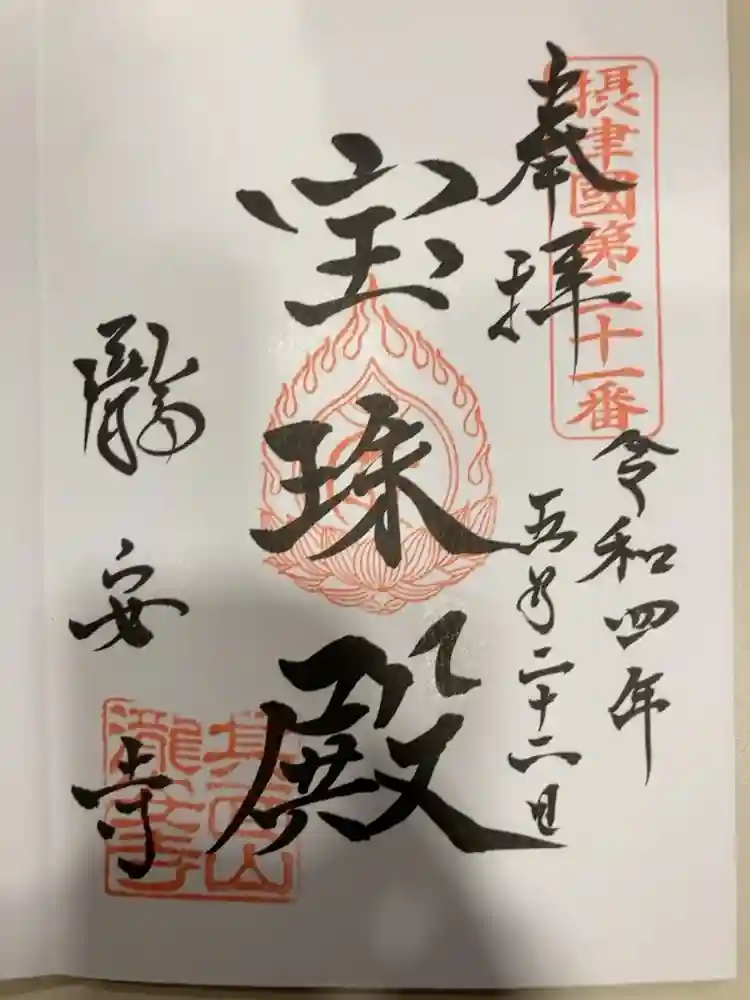 摂津國第二十一番
奉拝
令和四年
五月二十二日
宝珠殿
瀧安寺
箕面山
瀧安寺